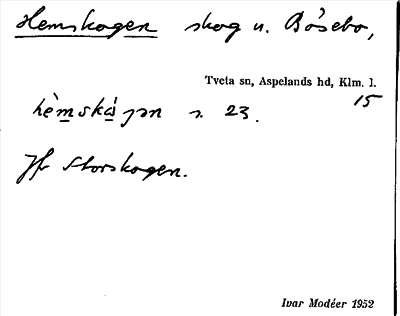 Hemskogen skog u. Bösebo,
Tveta sn, Aspelands hd, Klm. l.
15
hèmskågən s. 23.
Jfr Storskogen.
Ivar Modéer 1952